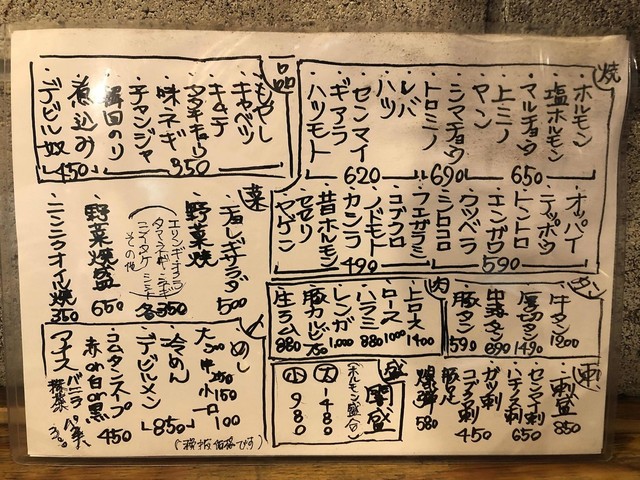 焼
・ホルモン
・塩ホルモン
・マルチョウ
650
・上ミノ
・ヤン
・シマチョウ
690
・トロミノ
・レバ
・ハツ
・センマイ
620
・ギアラ
・ハツモト
・オッパイ
・テッポウ
・トントロ
・エンガワ
590
・ウツベラ
・シロコロ
・フエガラミ
・コブクロ
・ノドモト
・カンラ
490
・昔ホルモン
・セセリ
・ヤゲン
一品
・もやし
・キャベツ
・キムチ
350
・味ネギ
・チャンジャ
・韓国のり
・煮込み
450
・デビル奴
菜
・塩レギサラダ 500
・野菜焼
エリンギ・オクラ
その他
各350
・野菜焼盛 650
・ニンニクオイル焼 350
タン
・牛タン 1200
・厚切タン 1490
690
・豚タン 590
肉
・上ロース 1400
・ロース 1000
・ハラミ 880
・レンガ 1,000
・豚カルビ 750
・生ラム 880
刺
・刺盛 850
・センマイ刺
650
・ハチノス刺
・ガツ刺
450
・コブクロ刺
580
盛
(ホルモン盛合)
大 1480
小 980
〆
・めし
大 300
中 250
小 150
100
・冷めん
850
・デビルメン
・コムタンスープ
450
赤 or 白 or 黒
・アイス バニラ
(税抜価格です)